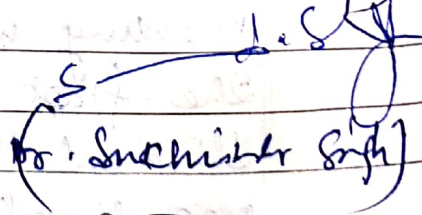 (Dr. Sukhinder Singh)